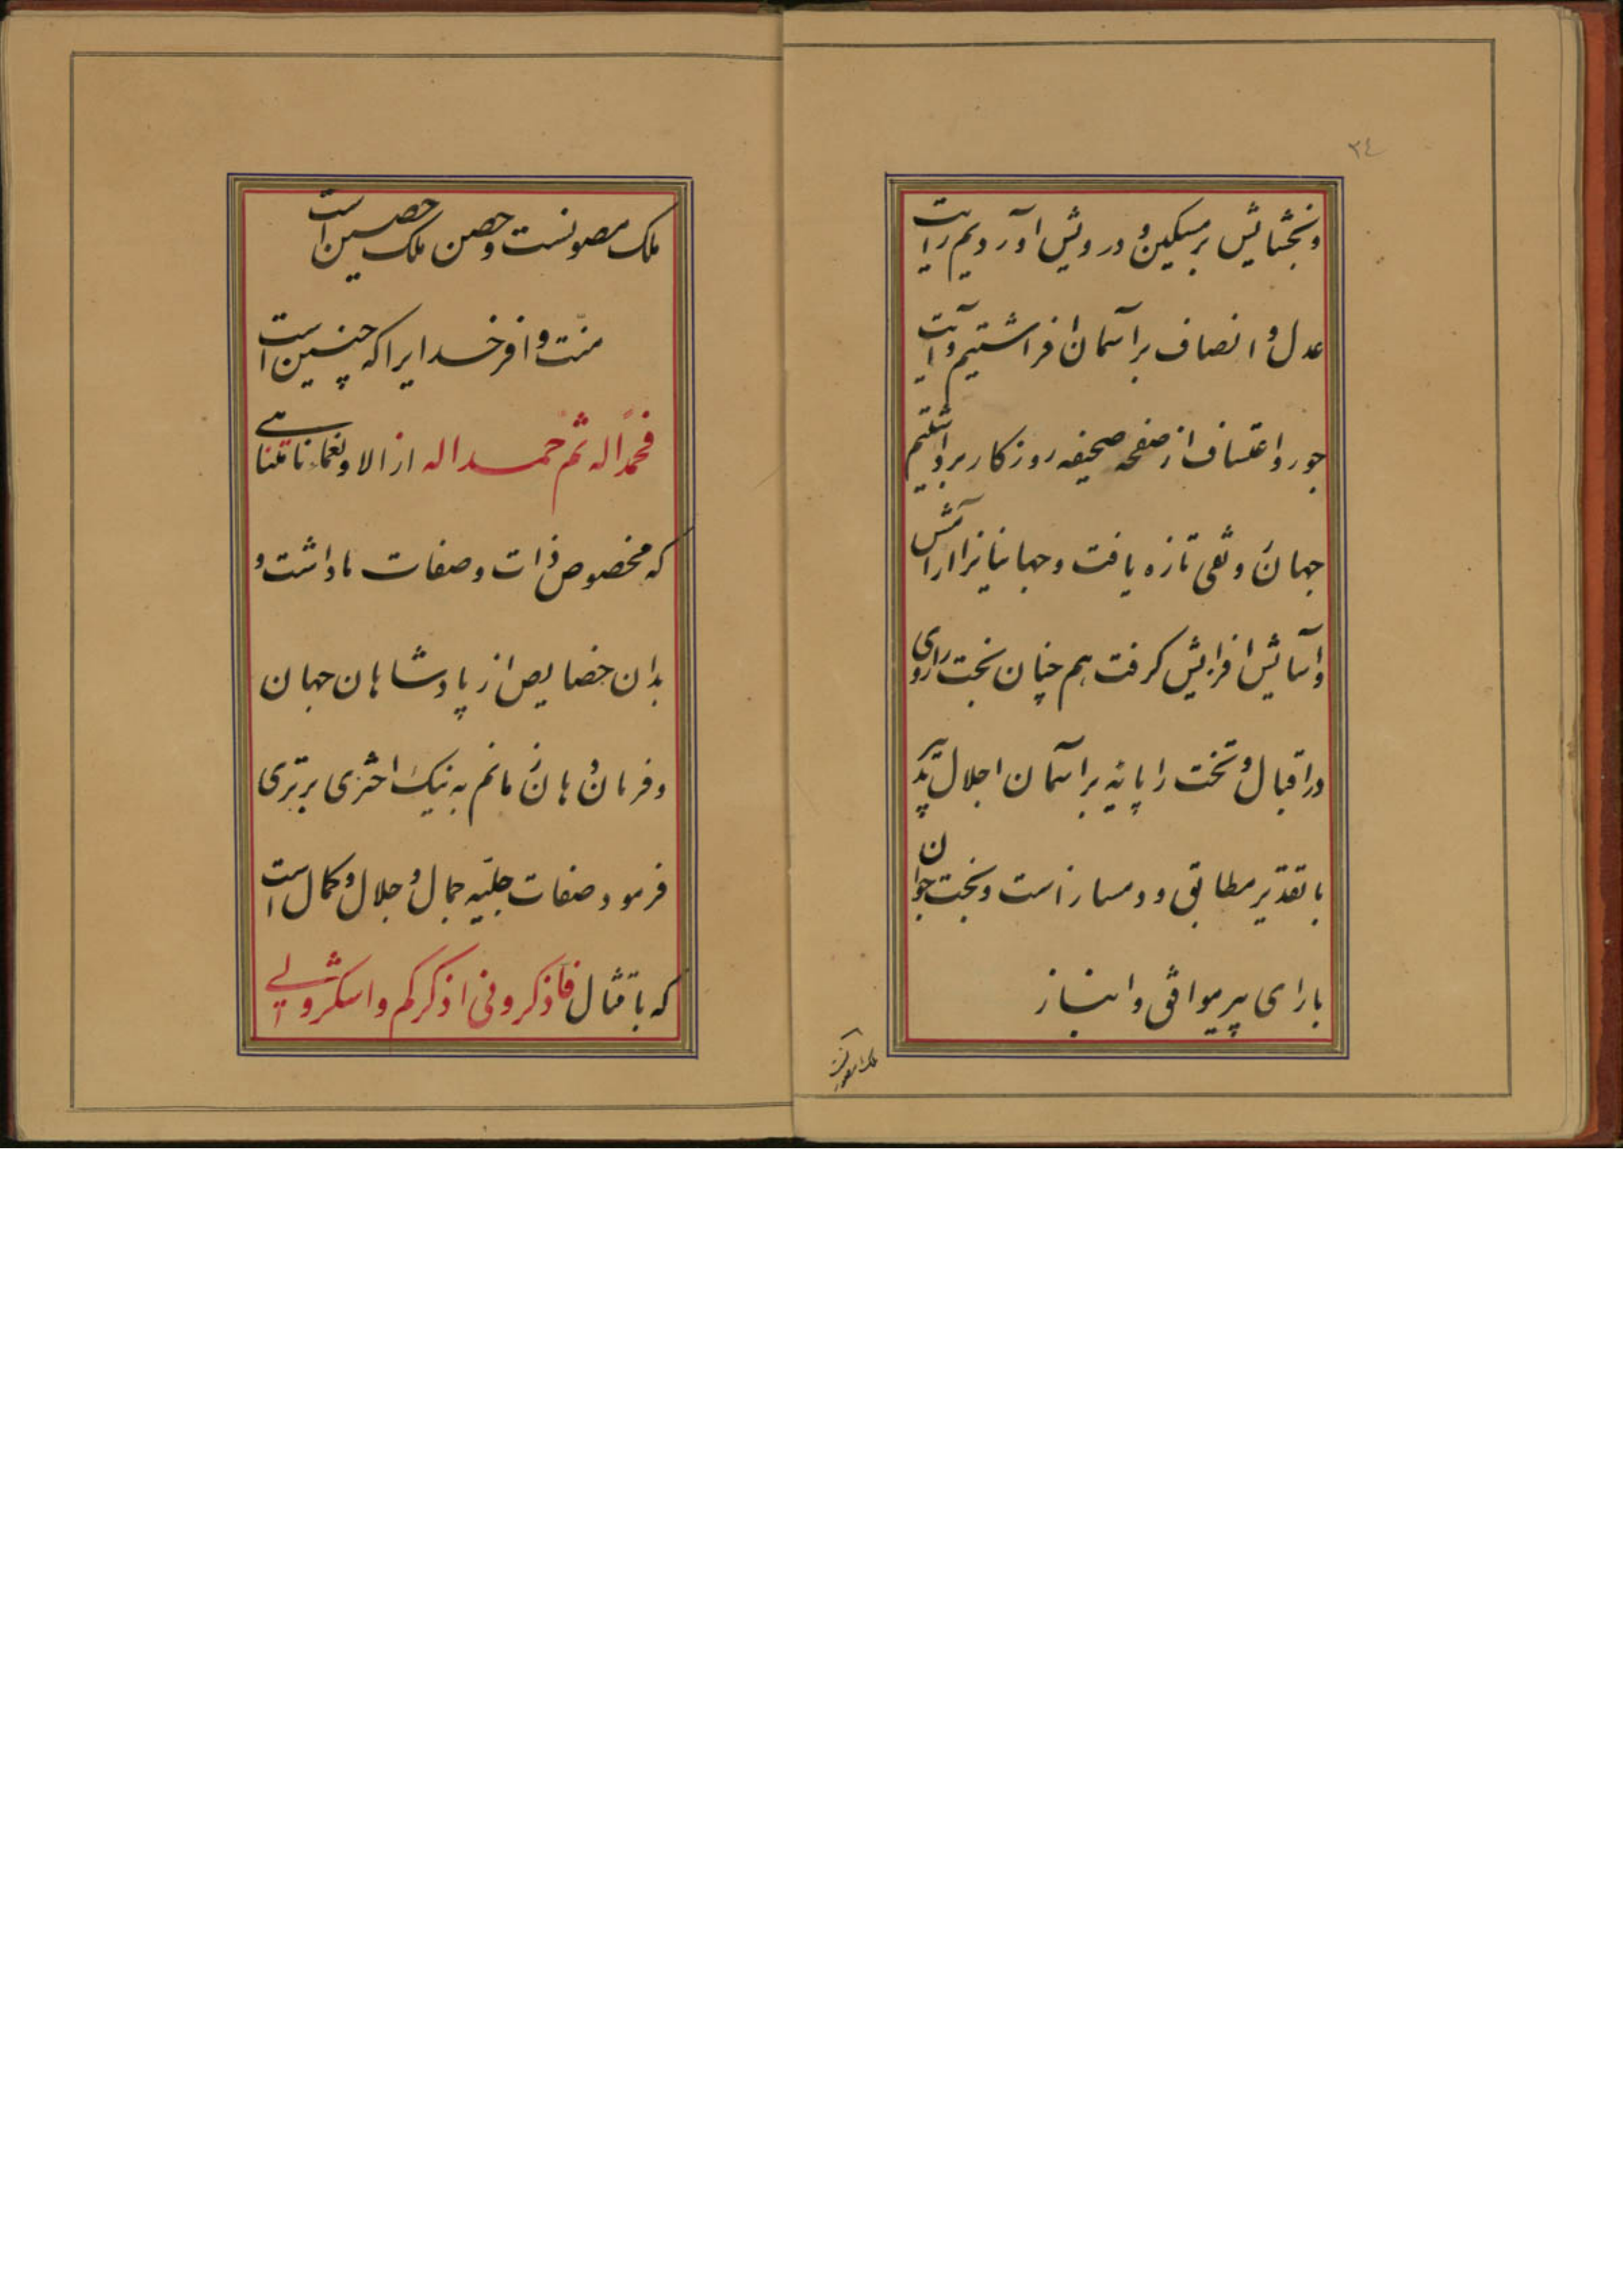 ٣٤
وبخشایش بر مسکین و درویش اوردیم رایت
عدل و انصاف بر آسمان افراشتیم و آیت
جور و اعتساف از صفحه صحیفه روزکار برداشتیم
جهان رونقی تازه یافت و جهانیانرا ارامش
و آسایش افزایش کرفت هم چنان بخت را روی
در اقبال و تخت را پایه بر آسمان اجلال تدبیر
با تقدیر مطابق و دمساز است و بخت جوان
با رای پیر موافق و انباز
ملک مصونست
ملک مصونست و حصن ملک حصین است
منّت وافر خدایرا که چنین است
فحمداً له ثمّ حمداً له از الاو نعماء نامتناهی
که مخصوص ذات و صفات ما داشت و
بدان خصایص از پادشاهان جهان
و فرمان دهان عالم به نیک اختری برتری
فرمود صفات جلیّه جمال و جلال و کمال است
که بامتثال فاذکرونی اذکرکم واشکروالی